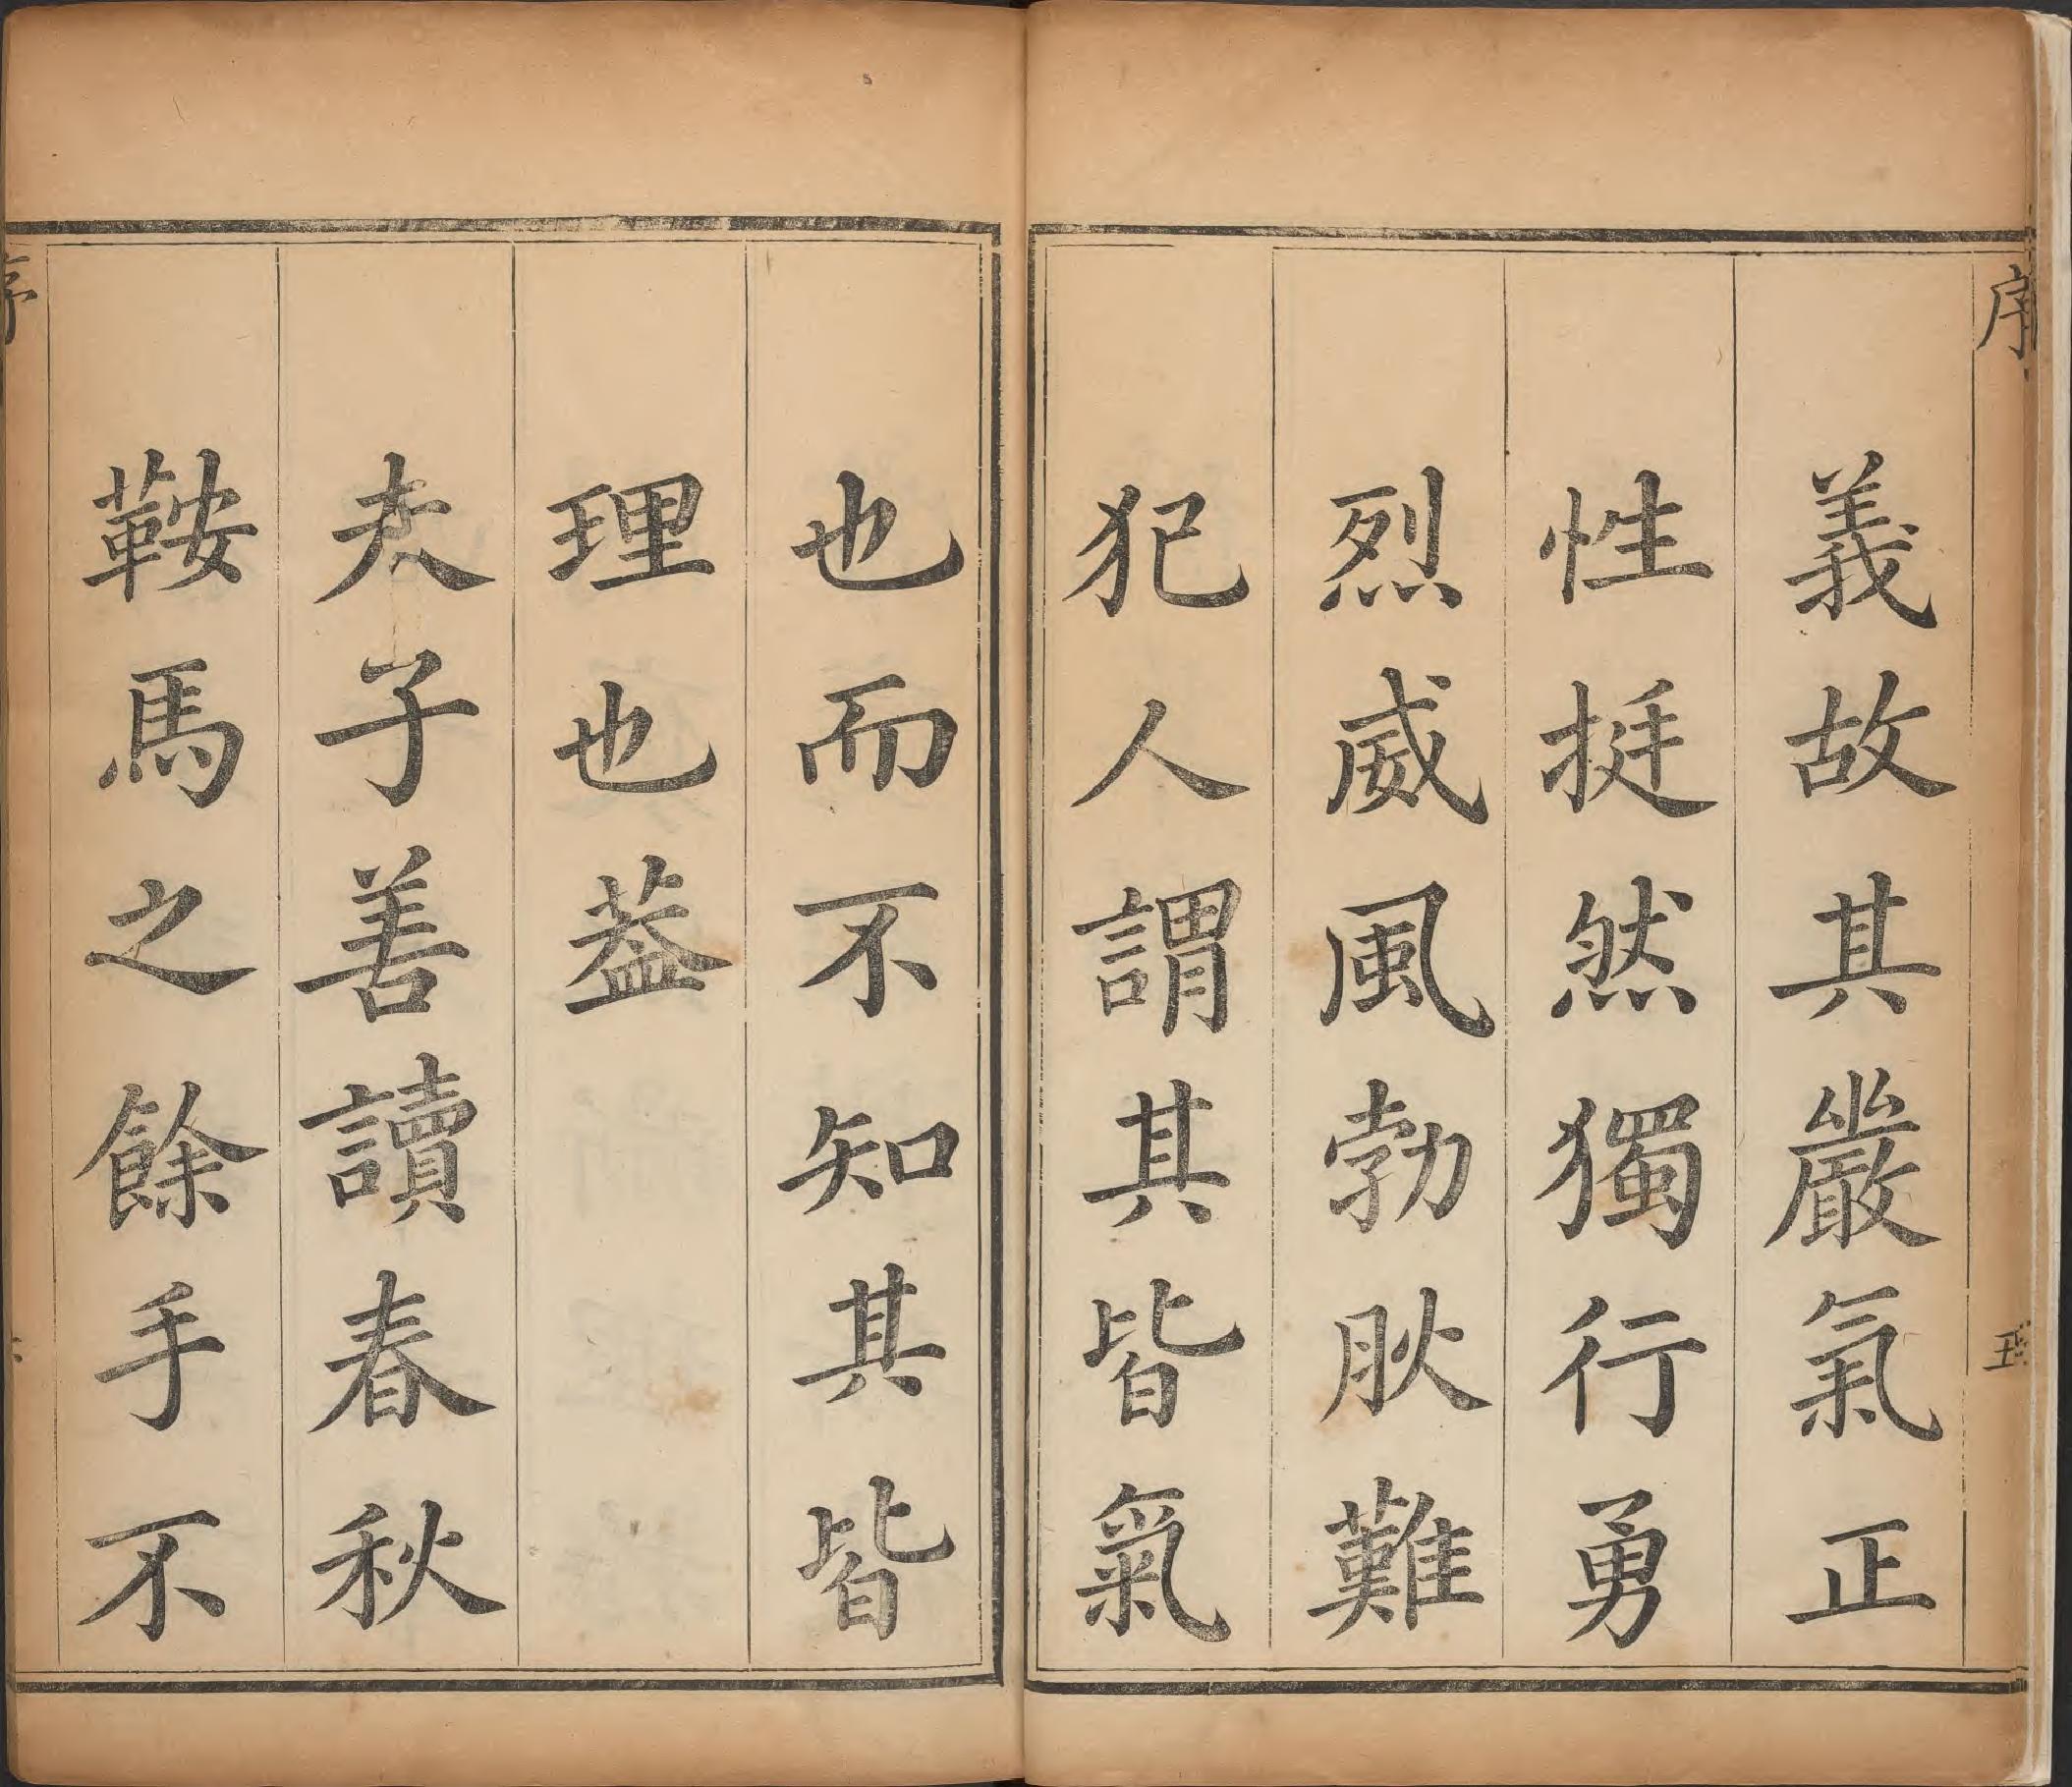 序
義故其嚴氣正
性挺然獨行勇
烈威風勃肰難
犯人謂其皆氣
也而不知其皆
理也葢
夫子善讀春秋
鞍馬之餘手不
序